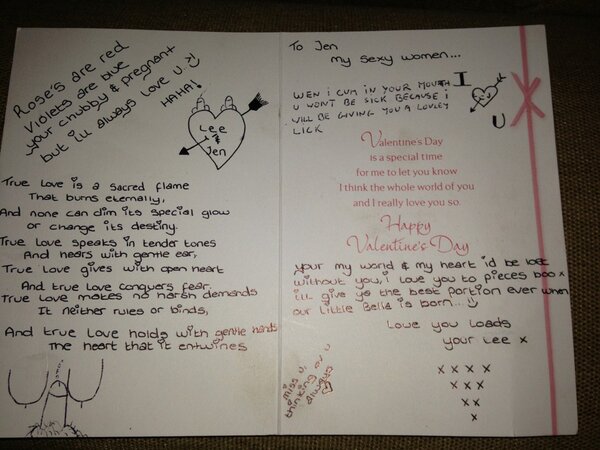 Rose's are red
Violets are blue
your chubby & pregnant
but ill always love u :)
HAHA!
Lee
&
Jen
True Love is a sacred flame
That burns eternally,
And none can dim its special glow
or change its destiny.
True Love speaks in tender tones
And hears with gentle ear,
True Love gives with open heart
And true Love conquers fear.
True Love makes no harsh demands
It neither rules or binds,
And true Love holds with gentle hands
The heart that it entwines
To Jen
my sexy women...
WEN i CUM iN YOUR MOUTH
U WONT BE SICK BECAUSE i
WILL BE GIVING YOU A LOVLEY
LICK
I
U
Valentine's Day
is a special time
for me to let you know
I think the whole world of you
and I really love you so.
Happy
Valentine's Day
your my world & my heart id be lost
without you, i love you to pieces boo x
ill give ya the best portion ever when
our Little Bella is born... :)
Love you Loads
your Lee x
x x x x
x x x
x x
x
miss u,
thinking of u
always